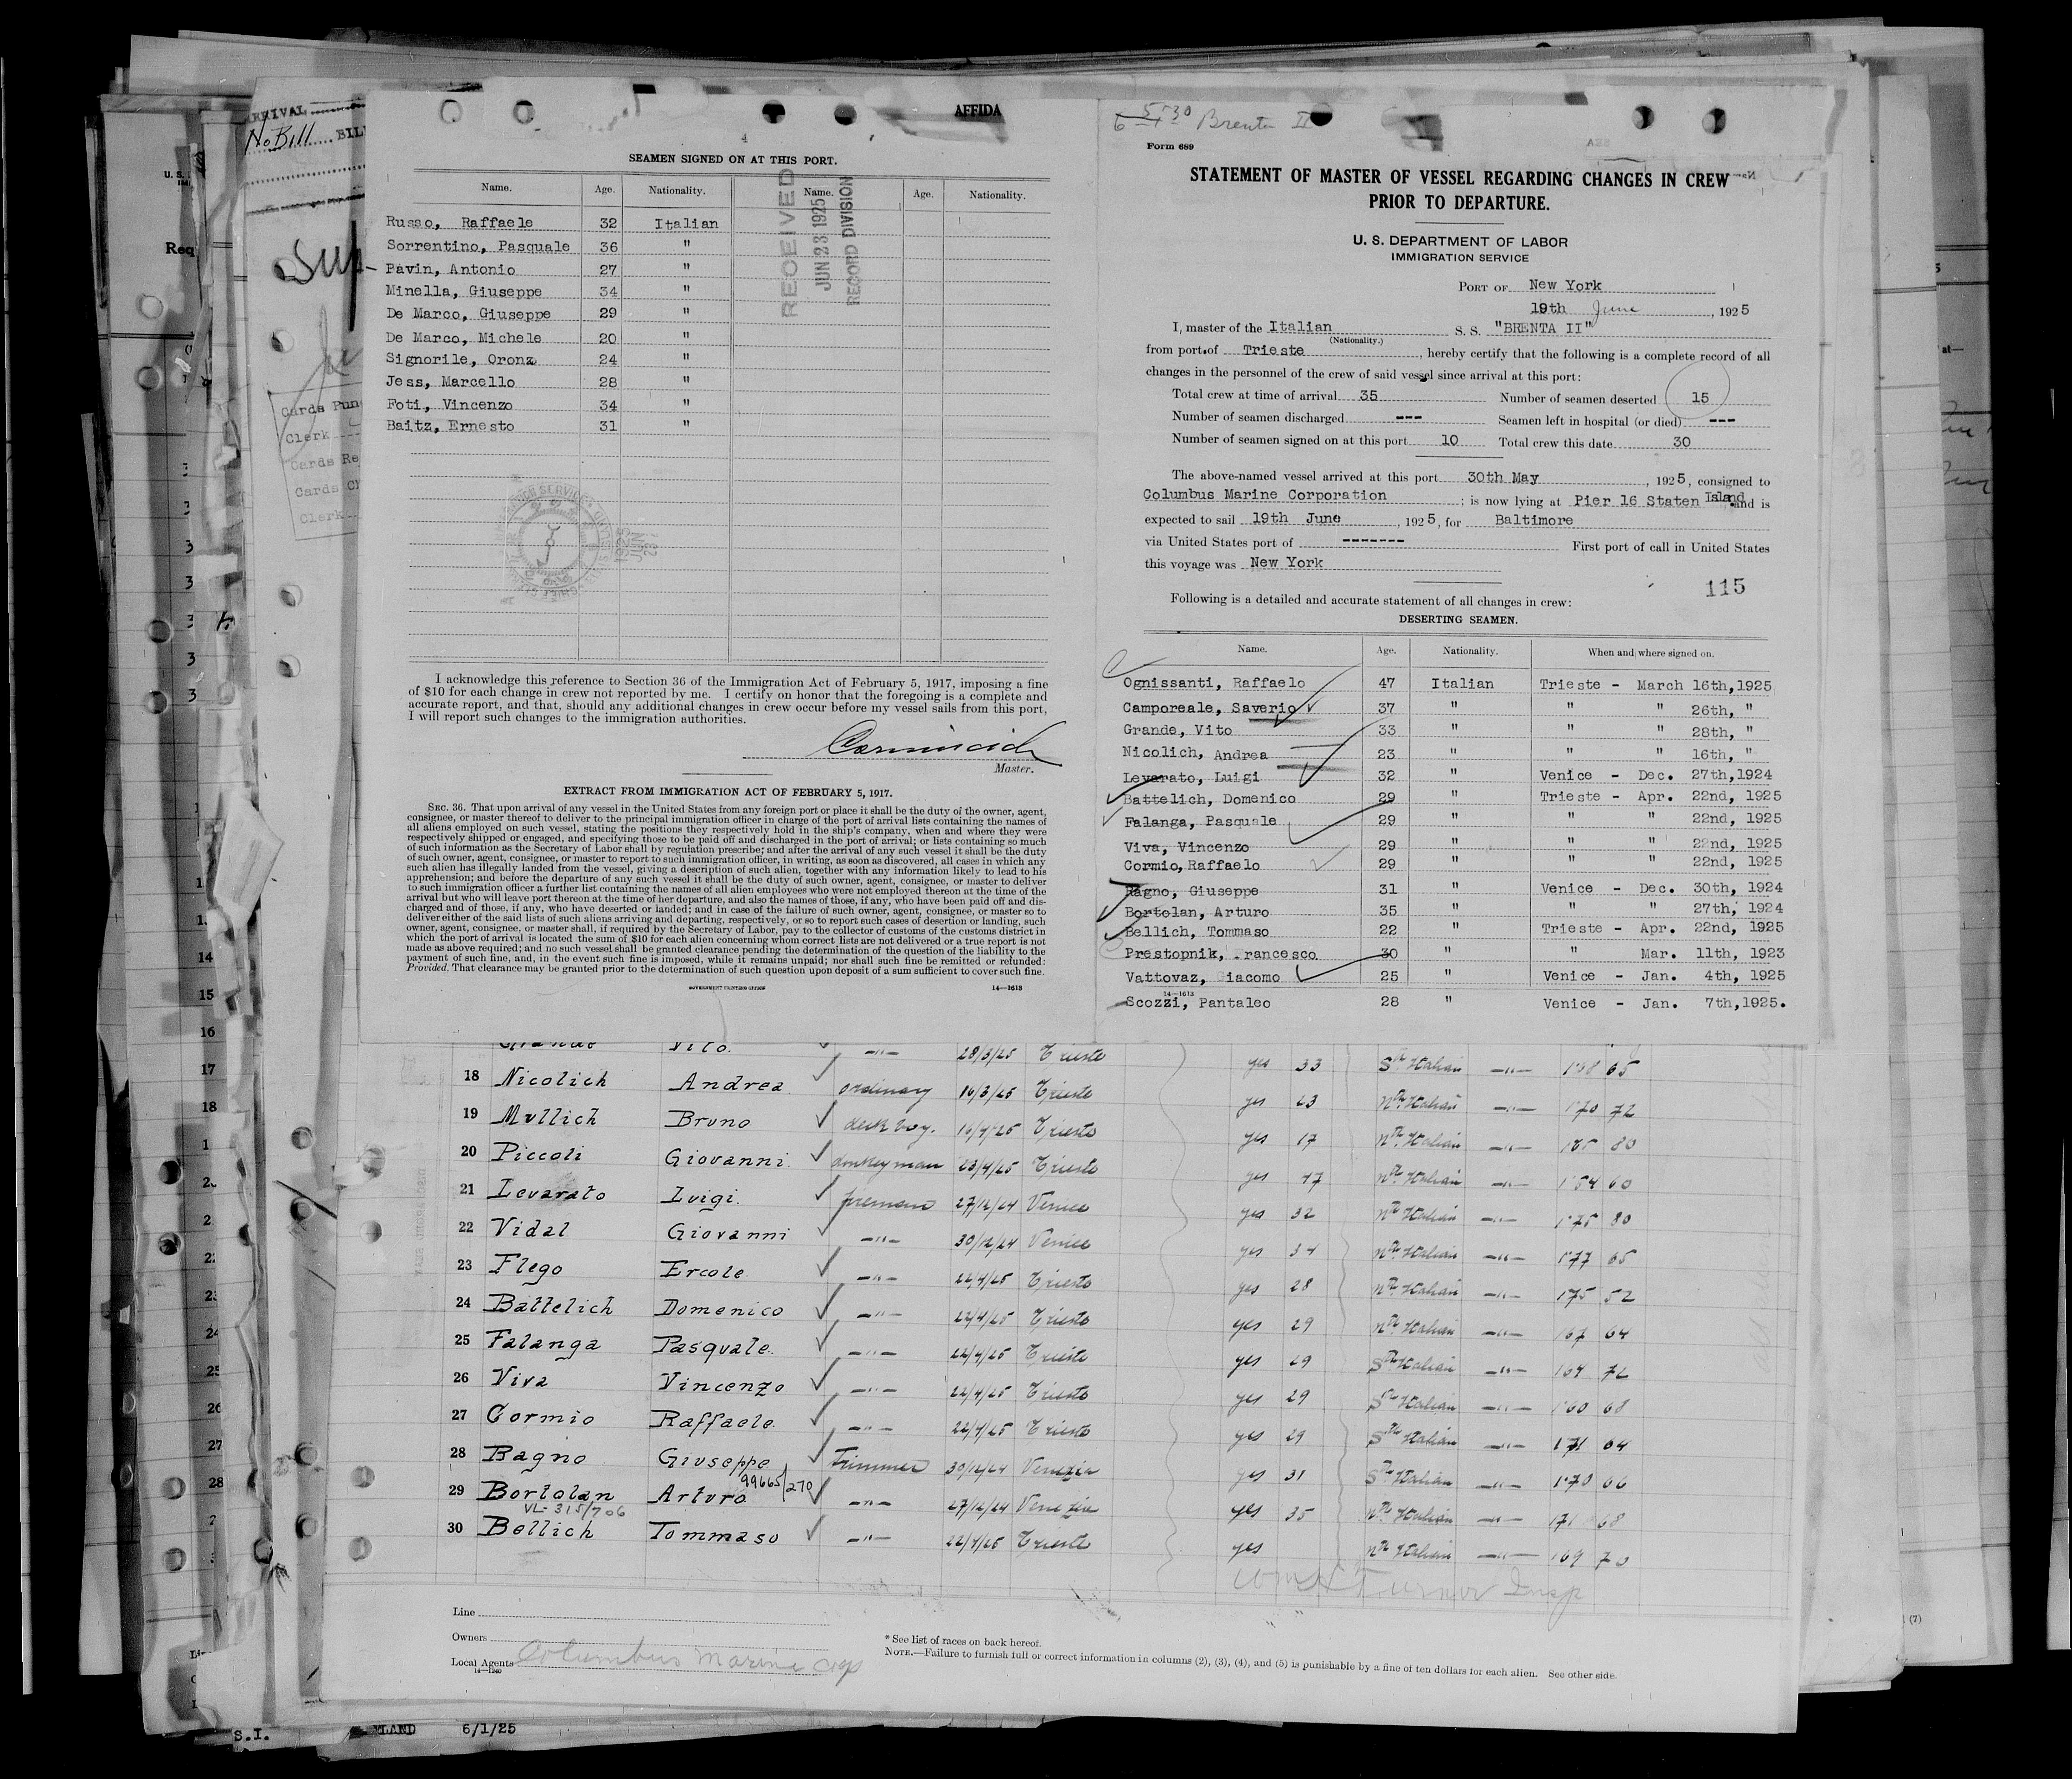 AFFIDA
4
SEAMEN SIGNED ON AT THIS PORT.
Name. Age. Nationality. Name. Age. Nationality.
RECEIVED
JUN 23 1925
RECORD DIVISION
Russo, Raffaele 32 Italian
Sorrentino, Pasquale 36 "
Pavin, Antonio 27 "
Minella, Giuseppe 34 "
De Marco, Giuseppe 29 "
De Marco, Michele 20 "
Signorile, Oronz 24 "
Jess, Marcello 28 "
Foti, Vincenzo 34 "
Baitz, Ernesto 31 "
I acknowledge this reference to Section 36 of the Immigration Act of February 5, 1917, imposing a fine
of $10 for each change in crew not reported by me. I certify on honor that the foregoing is a complete and
accurate report, and that, should any additional changes in crew occur before my vessel sails from this port,
I will report such changes to the immigration authorities.
Master.
EXTRACT FROM IMMIGRATION ACT OF FEBRUARY 5, 1917.
SEC. 36. That upon arrival of any vessel in the United States from any foreign port or place it shall be the duty of the owner, agent,
consignee, or master thereof to deliver to the principal immigration officer in charge of the port of arrival lists containing the names of
all aliens employed on such vessel, stating the positions they respectively hold in the ship's company, when and where they were
respectively shipped or engaged, and specifying those to be paid off and discharged in the port of arrival; or lists containing so much
of such information as the Secretary of Labor shall by regulation prescribe; and after the arrival of any such vessel it shall be the duty
of such owner, agent, consignee, or master to report to such immigration officer, in writing, as soon as discovered, all cases in which any
such alien has illegally landed from the vessel, giving a description of such alien, together with any information likely to lead to his
apprehension; and before the departure of any such vessel it shall be the duty of such owner, agent, consignee, or master to deliver
to such immigration officer a further list containing the names of all alien employees who were not employed thereon at the time of the
arrival but who will leave port thereon at the time of her departure, and also the names of those, if any, who have been paid off and dis-
charged and of those, if any, who have deserted or landed; and in case of the failure of such owner, agent, consignee, or master so to
deliver either of the said lists of such aliens arriving and departing, respectively, or so to report such cases of desertion or landing, such
owner, agent, consignee, or master shall, if required by the Secretary of Labor, pay to the collector of customs of the customs district in
which the port of arrival is located the sum of $10 for each alien concerning whom correct lists are not delivered or a true report is not
made as above required; and no such vessel shall be granted clearance pending the determination of the question of the liability to the
payment of such fine, and, in the event such fine is imposed, while it remains unpaid; nor shall such fine be remitted or refunded:
Provided, That clearance may be granted prior to the determination of such question upon deposit of a sum sufficient to cover such fine.
GOVERNMENT PRINTING OFFICE 14—1613
Brenta II
Form 689
STATEMENT OF MASTER OF VESSEL REGARDING CHANGES IN CREW
PRIOR TO DEPARTURE.
U. S. DEPARTMENT OF LABOR
IMMIGRATION SERVICE
PORT OF New York
19th June, 1925
I, master of the Italian S. S. "BRENTA II"
(Nationality.)
from port of Trieste, hereby certify that the following is a complete record of all
changes in the personnel of the crew of said vessel since arrival at this port:
Total crew at time of arrival 35 Number of seamen deserted 15
Number of seamen discharged --- Seamen left in hospital (or died) ---
Number of seamen signed on at this port 10 Total crew this date 30
The above-named vessel arrived at this port 30th May, 1925, consigned to
Columbus Marine Corporation; is now lying at Pier 16 Staten Island and is
expected to sail 19th June, 1925, for Baltimore
via United States port of ------- First port of call in United States
this voyage was New York
115
Following is a detailed and accurate statement of all changes in crew:
DESERTING SEAMEN.
Name. Age. Nationality. When and where signed on.
Ognissanti, Raffaelo 47 Italian Trieste - March 16th,1925
Camporeale, Saverio 37 " " " 26th, "
Grande, Vito 33 " " " 28th, "
Nicolich, Andrea 23 " " " 16th, "
Levarato, Luigi 32 " Venice - Dec. 27th,1924
Battelich, Domenico 29 " Trieste - Apr. 22nd, 1925
Falanga, Pasquale 29 " " " 22nd, 1925
Viva, Vincenzo 29 " " " 22nd, 1925
Cormio, Raffaelo 29 " " " 22nd, 1925
Bagno, Giuseppe 31 " Venice - Dec. 30th, 1924
Bortolan, Arturo 35 " " " 27th, 1924
Bellich, Tommaso 22 " Trieste - Apr. 22nd, 1925
Prestopnik, Francesco 30 " " Mar. 11th, 1923
Vattovaz, Giacomo 25 " Venice - Jan. 4th, 1925
14—1613
Scozzi, Pantaleo 28 " Venice - Jan. 7th,1925.
Grande Vito. —"— 28/3/25 Trieste yes 33 Sth Italian —"— 65
18 Nicolich Andrea ordinary 16/3/25 Trieste yes 23 Nth Italian —"— 170 72
19 Mullich Bruno deck boy. 16/4/25 Trieste yes 17 Nth Italian —"— 80
20 Piccoli Giovanni donkeyman 23/4/25 Trieste yes 47 Nth Italian —"— 60
21 Levarato Luigi. fireman 27/12/24 Venice yes 32 Nth Italian —"— 175 80
22 Vidal Giovanni —"— 30/12/24 Venice yes 34 Nth Italian —"— 177 65
23 Flego Ercole —"— 22/4/25 Trieste yes 28 Nth Italian —"— 175 52
24 Battelich Domenico —"— 22/4/25 Trieste yes 29 Nth Italian —"— 167 64
25 Falanga Pasquale. —"— 22/4/25 Trieste yes 29 Sth Italian —"— 72
26 Viva Vincenzo —"— 22/4/25 Trieste yes 29 Sth Italian —"— 160 68
27 Cormio Raffaele. —"— 22/4/25 Trieste yes 29 Sth Italian —"— 171 64
28 Bagno Giuseppe Trimmer 30/12/24 Venezia yes 31 Sth Italian —"— 170 66
99665/270
29 Bortolan Arturo —"— 27/12/24 Venezia yes 35 Nth Italian —"— 171 68
VL-315/706
30 Bellich Tommaso —"— 22/4/25 Trieste yes Nth Italian —"— 169 70
Turner Insp
Line
Owners
Local Agents Columbus Marine Corp
14—1240
* See list of races on back hereof.
NOTE.—Failure to furnish full or correct information in columns (2), (3), (4), and (5) is punishable by a fine of ten dollars for each alien. See other side.
No Bill
Cards Pun
Clerk
Cards Re
Cards Ch
Clerk
Req
14
15
16
17
18
27
28
S.I. 6/1/25
(7)